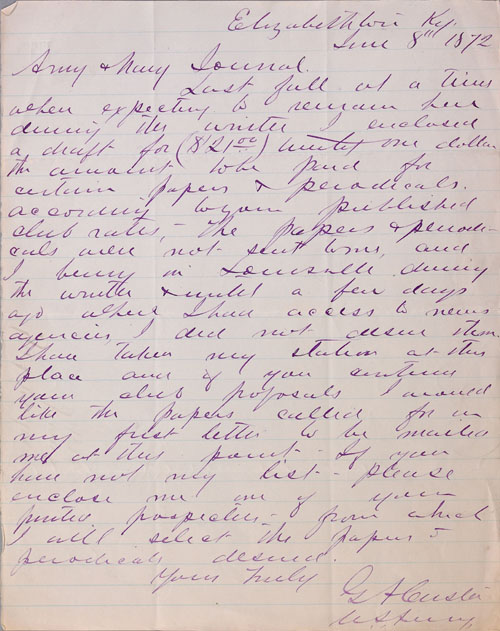 Elizabethtown Ky.
June 8th 1872
Army & Navy Journal.
Last fall at a time
when expecting to remain here
during the winter I enclosed
a draft for ($21.00) twenty one dollars
the amount to be paid for
certain papers & periodicals.
according to your published
club rates,- The papers & period-
cals were not sent to me, and
I being in Louisville during
the winter & until a few days
ago where I have access to news
agencies I did not desire them
I have taken my station at this
place and if you continue
your club proposals I would
like the papers called for in
my first letter to be mailed
me at this point - If you
have not my list - please
enclose me one of your
printed prospectus - from which
I will select the papers &
periodicals desired.
Yours Truly
G A Custer
U S Army